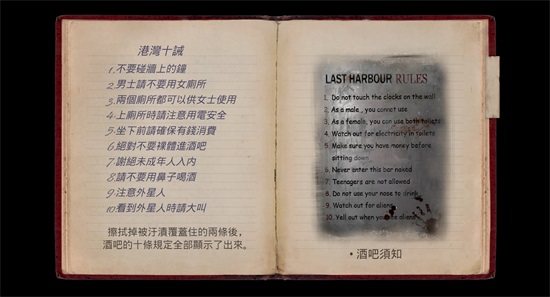 港灣十誡
1.不要碰牆上的鐘
2.男士請不要用女廁所
3.兩個廁所都可以供女士使用
4.上廁所時請注意用電安全
5.坐下前請確保有錢消費
6.絕對不要裸體進酒吧
7.謝絕未成年人人內
8.請不要用鼻子喝酒
9.注意外星人
10.看到外星人時請大叫
擦拭掉被汙漬覆蓋住的兩條後，
酒吧的十條規定全部顯示了出來。
LAST HARBOUR RULES
1. Do not touch the clocks on the wall
2. As a male , you cannot use
3. As a female, you can use both toilets
4. Watch out for electricity in toilets
5. Make sure you have money before
sitting down
6. Never enter this bar naked
7. Teenagers are not allowed
8. Do not use your nose to drink
9. Watch out for aliens
10. Yell out when you see aliens
• 酒吧須知